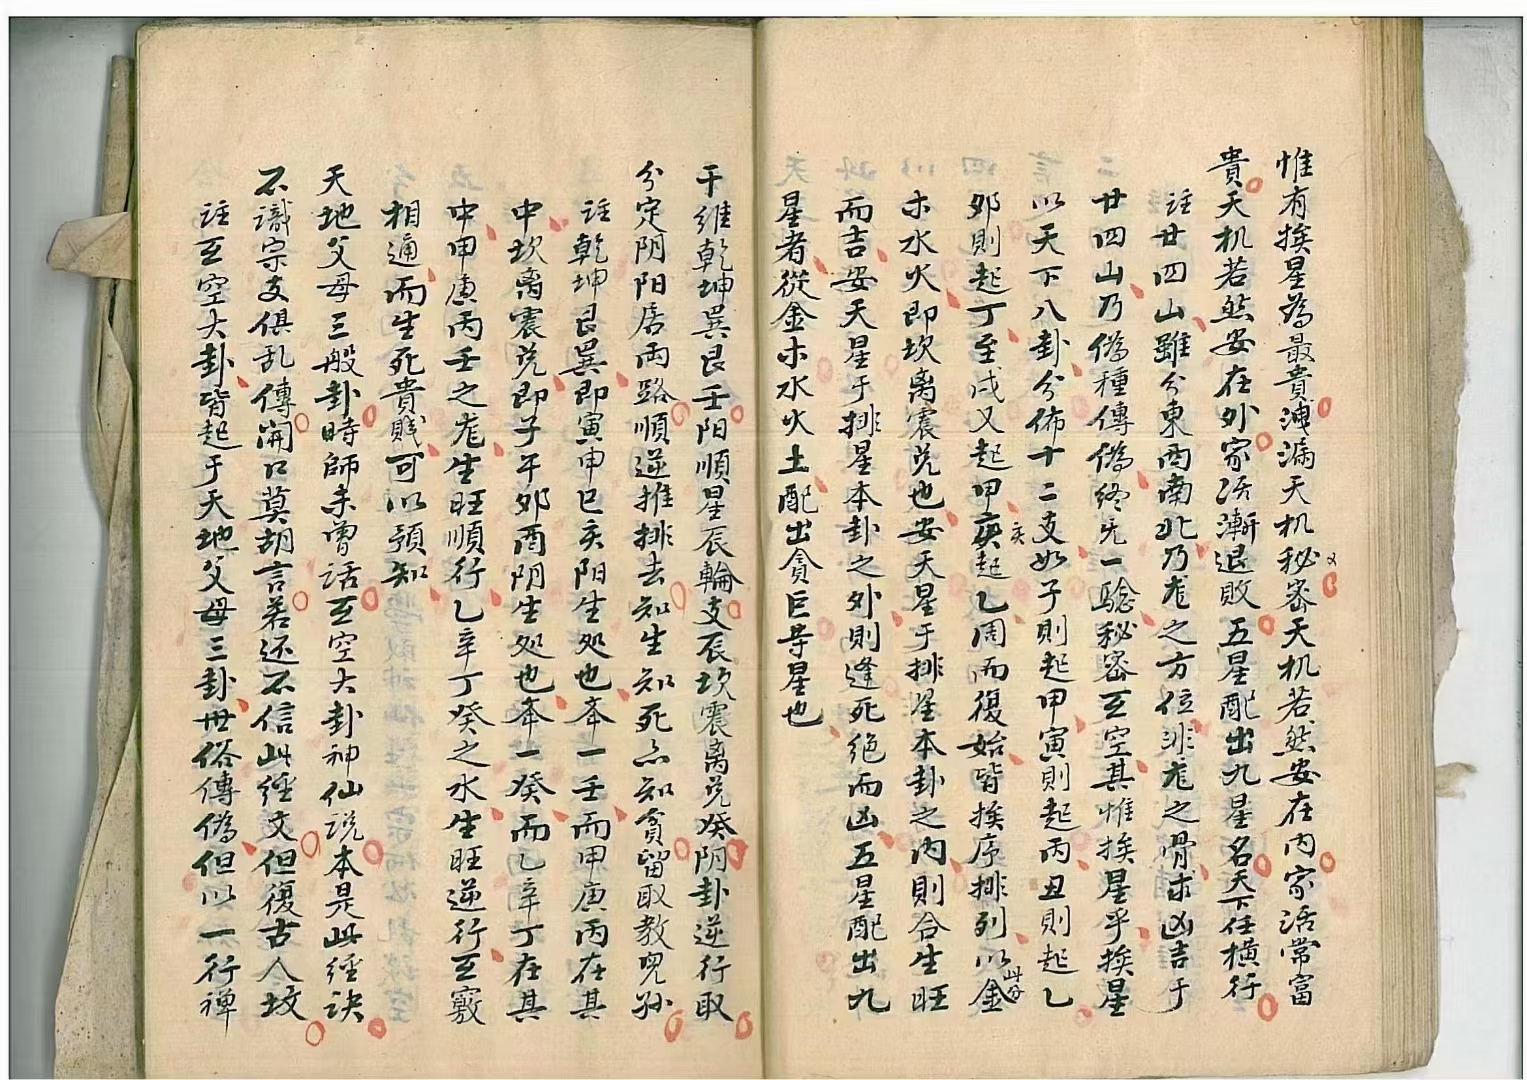 惟有挨星為最貴洩漏天机秘密天机若然安在内家活常富
貴天机若然安在外家活漸退敗五星配出九星名天下任橫行
註廿四山雖分東西南北乃龙之方位非龙之骨求凶吉于
廿四山乃偽種傳偽終无一驗秘密玄空其惟挨星乎挨星
以天下八卦分佈十二支如子則起甲寅則起丙丑則起乙
亥
卯則起丁至戌又起甲庚起乙周而復始皆挨序排列以金
木水火即坎离震兑也安天星于排星本卦之内則合生旺
而吉安天星于排星本卦之外則逢死绝而凶五星配出九
天星者從金木水火土配出貪巨等星也
干維乾坤巽艮壬阳順星辰輪支辰坎震离兑癸阴卦逆行取
分定阴阳居两路順逆推排去知生知死亦知貪留取教兒孙
註乾坤艮巽即寅申巳亥阳生处也夲一壬而甲庚丙在其
中坎离震兑即子午卯酉阴生处也夲一癸而乙辛丁在其
中甲庚丙壬之龙生旺順行乙辛丁癸之水生旺逆行玄竅
相通而生死貴賎可以預知
天地父母三般卦時師未曾话玄空大卦神仙说本是此經訣
不識宗支俱乱傳開口莫胡言若还不信此經文但復古人坟
註玄空大卦皆起于天地父母三卦世俗傳偽但以一行禅